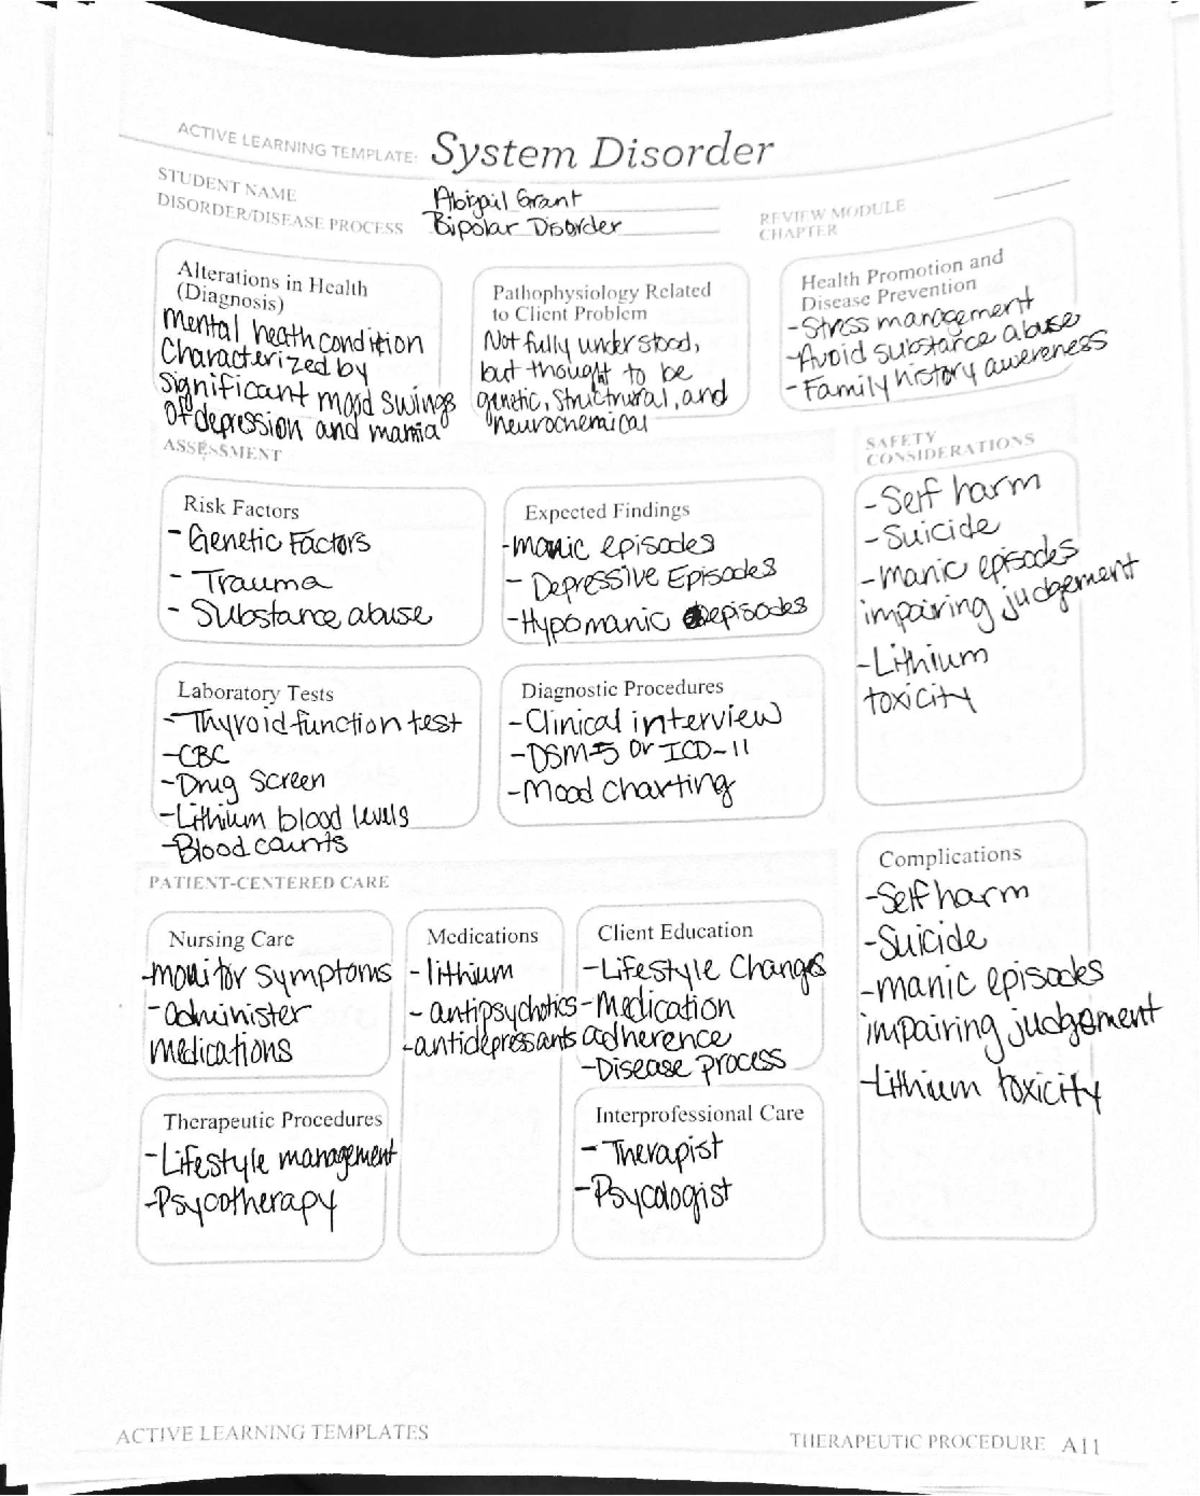 ACTIVE LEARNING TEMPLATE: System Disorder
STUDENT NAME Abigail Grant
DISORDER/DISEASE PROCESS Bipolar Disorder
REVIEW MODULE
CHAPTER
Alterations in Health
(Diagnosis)
Mental heath condition
Characterized by
significant mood swings
of depression and mania
Pathophysiology Related
to Client Problem
Not fully understood,
but thought to be
genetic, structrural, and
neurochemical
Health Promotion and
Disease Prevention
-Stress management
-Avoid substance abuse
-Family history awereness
ASSESSMENT
SAFETY
CONSIDERATIONS
Risk Factors
- Genetic Factors
- Trauma
- Substance abuse
Expected Findings
-manic episodes
- Depressive Episodes
-Hypomanic episodes
-Self harm
-Suicide
-manic episodes
impairing judgement
-Lithium
toxicity
Laboratory Tests
-Thyroid function test
-CBC
-Drug Screen
-Lithium blood levels
-Blood counts
Diagnostic Procedures
-Clinical interview
-DSM-5 or ICD-11
-Mood charting
PATIENT-CENTERED CARE
Complications
-Self harm
-Suicide
-manic episodes
impairing judgement
-Lithium toxicity
Nursing Care
-monitor symptoms
-administer
medications
Medications
-lithium
-antipsychotics
-antidepressants
Client Education
-Lifestyle Changes
-Medication
adherence
-Disease process
Therapeutic Procedures
-Lifestyle management
-Psycotherapy
Interprofessional Care
- Therapist
-Psycologist
ACTIVE LEARNING TEMPLATES
THERAPEUTIC PROCEDURE A11